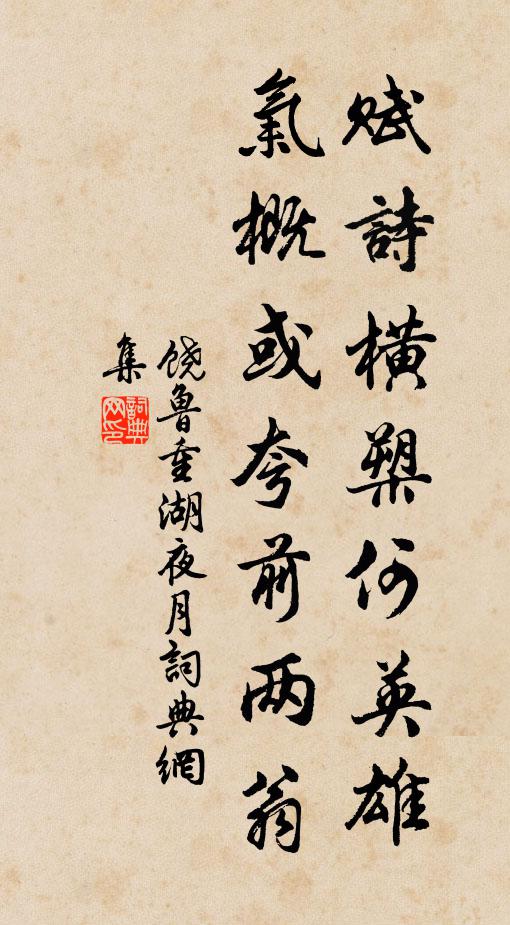 賦詩橫槊何英雄
氣概或夸前兩翁
饶魯重湖夜月詞典網
集
詞典網印